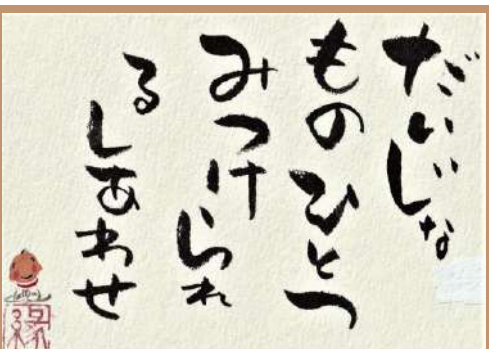 だいじな
ものひとつ
みつけられ
るしあわせ